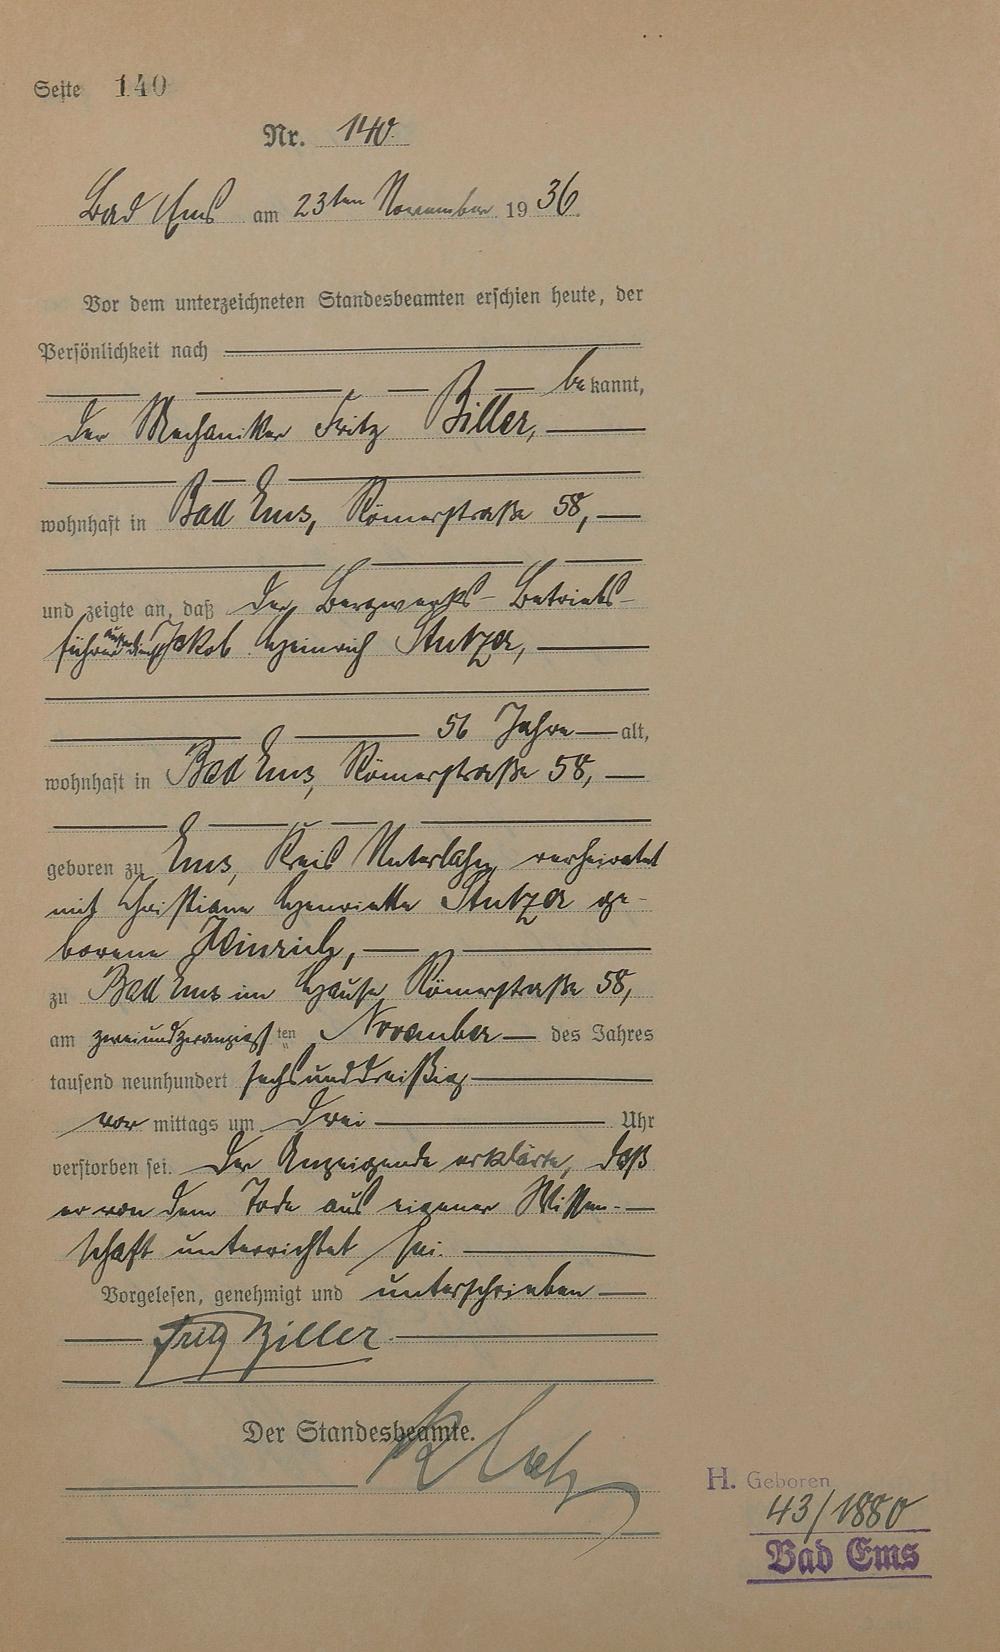 Seite 140
Nr. 140.
Bad Ems am 23ten November 1936.
Vor dem unterzeichneten Standesbeamten erschien heute, der
Persönlichkeit nach
bekannt,
der Mechaniker Fritz Biller,
wohnhaft in Bad Ems, Römerstraße 58,
und zeigte an, daß der Bergwerks-Betriebs-
führer außer Dienst Jakob Heinrich Stutzer,
56 Jahre alt,
wohnhaft in Bad Ems, Römerstraße 58,
geboren zu Ems, Kreis Unterlahn, verheiratet
mit Christiane Henriette Stutzer ge-
borene Hinrich,
zu Bad Ems im Hause Römerstraße 58,
am zweiundzwanzigsten November des Jahres
tausend neunhundert sechsunddreißig
vor mittags um drei Uhr
verstorben sei. Der Anzeigende erklärte, daß
er von dem Tode aus eigener Wissen-
schaft unterrichtet sei.
Vorgelesen, genehmigt und unterschrieben
Fritz Biller
Der Standesbeamte.
H. Geboren
43/1880
Bad Ems